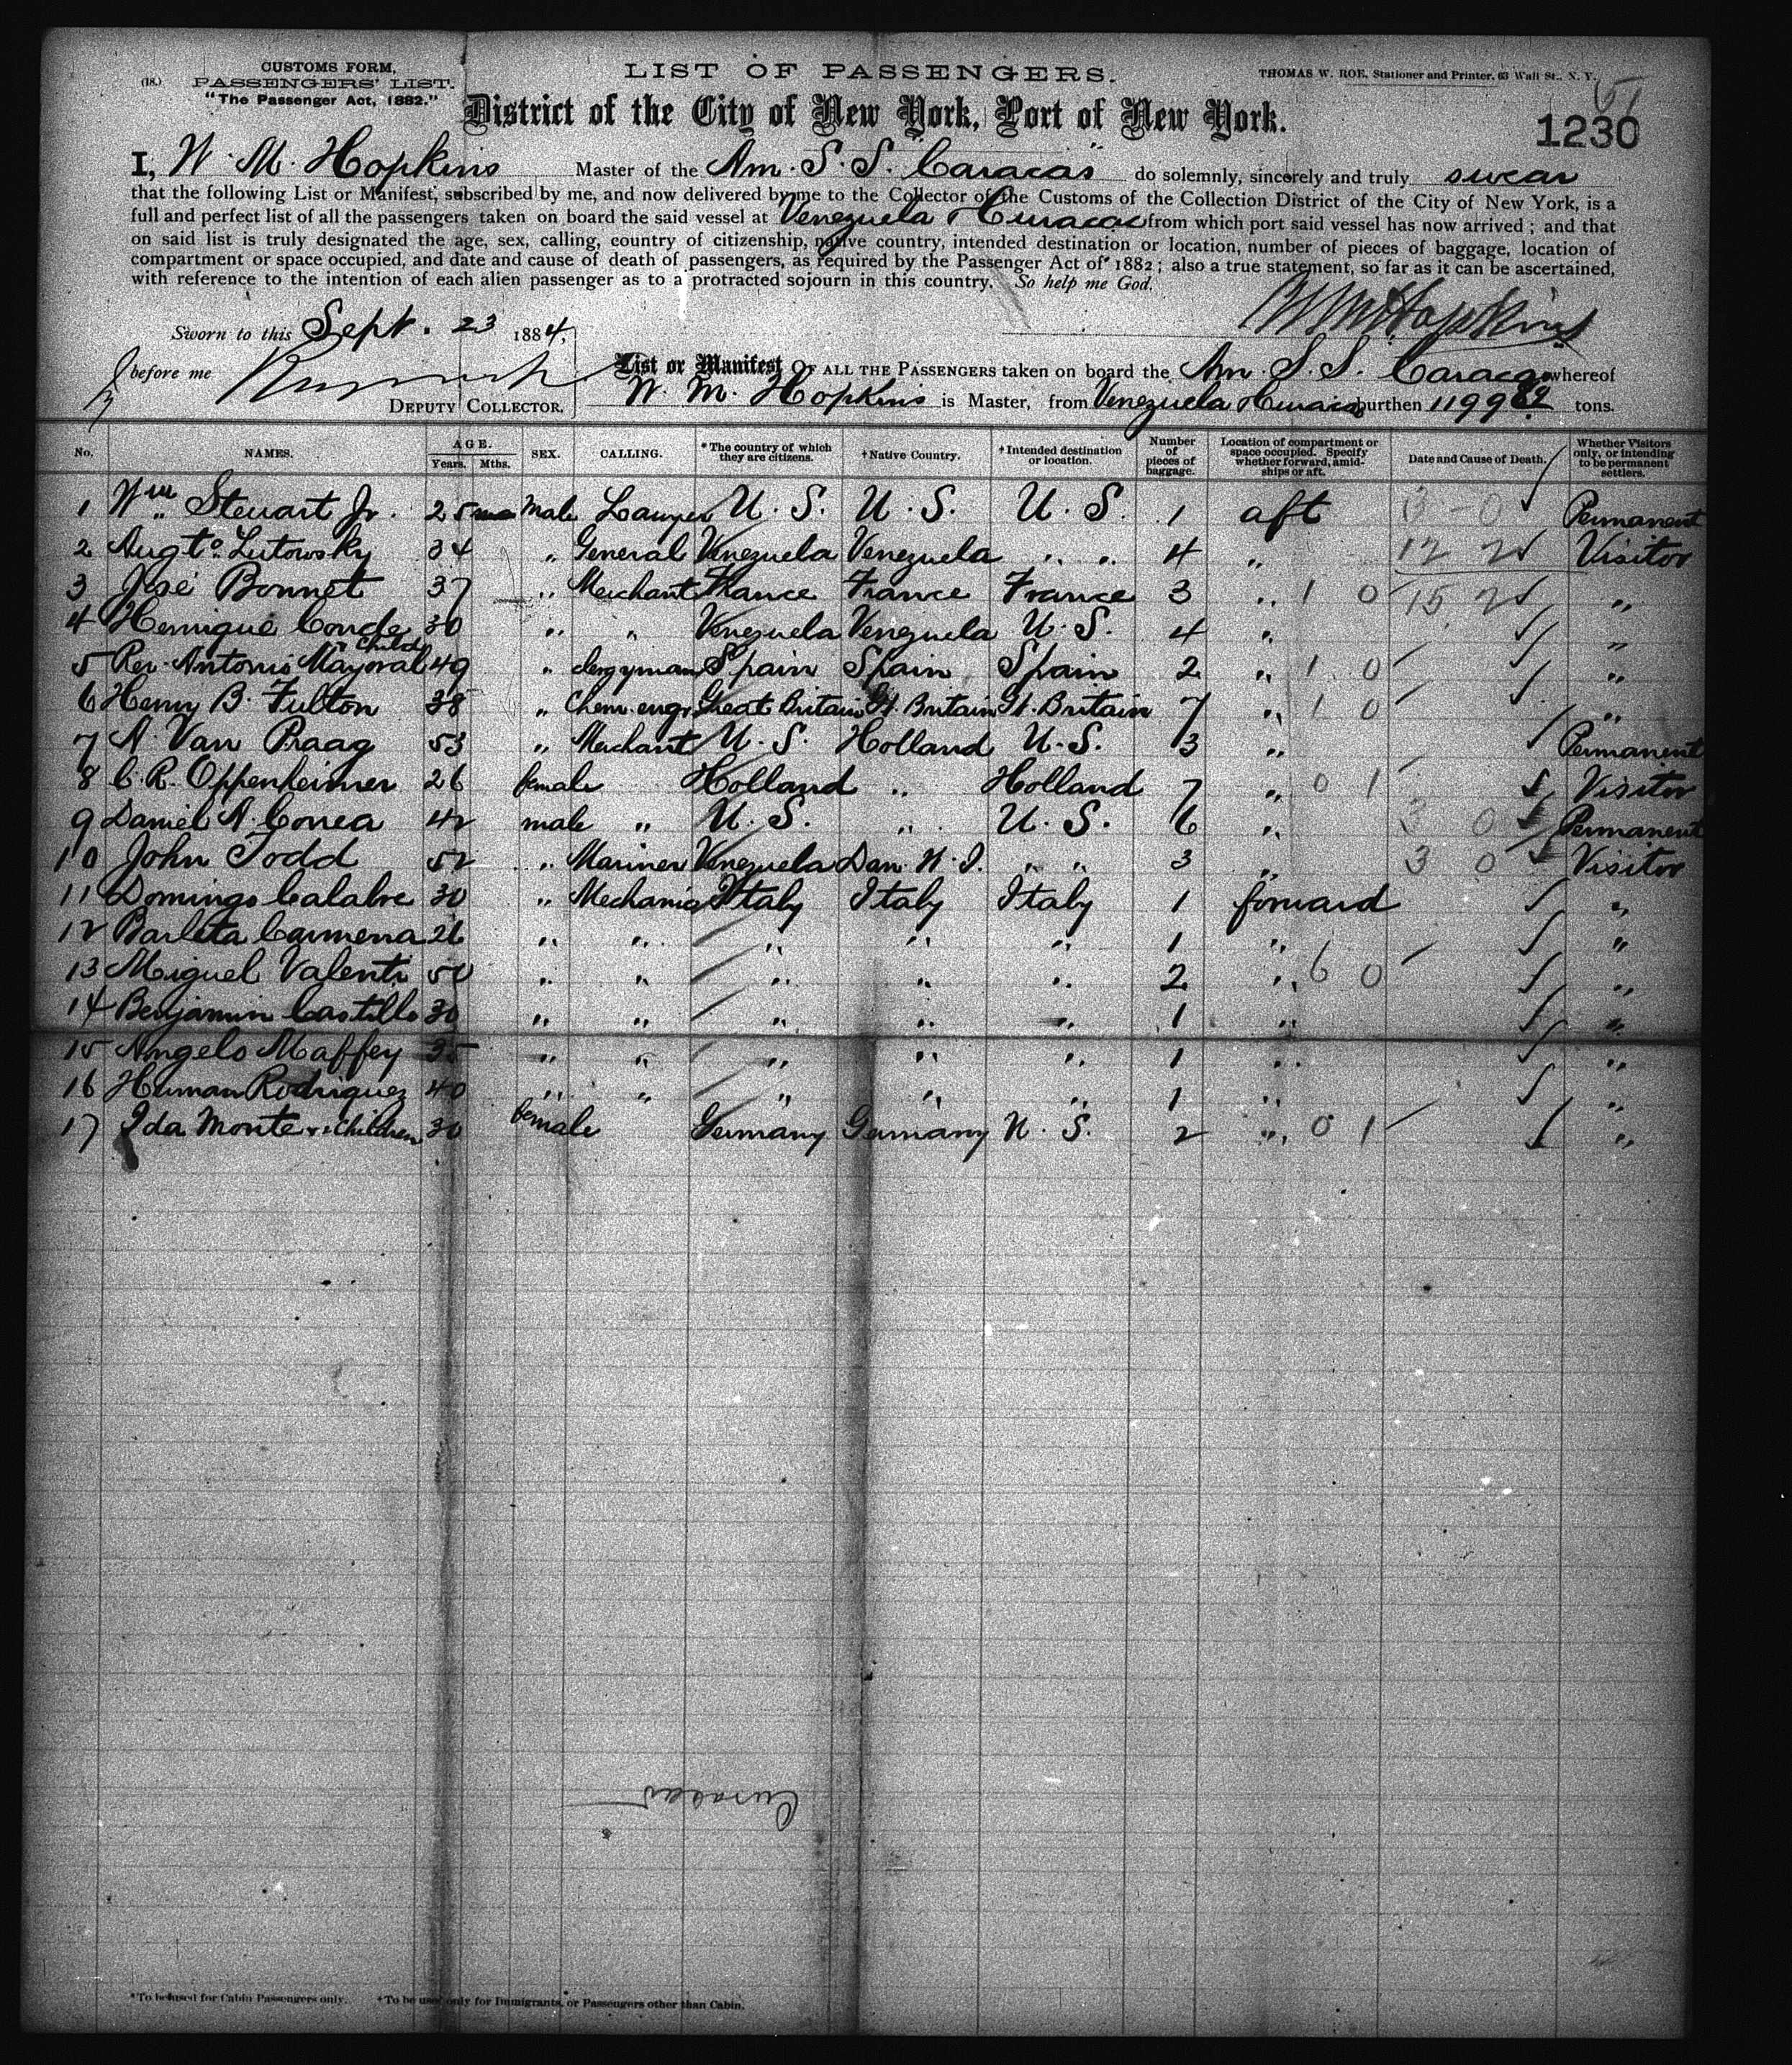 CUSTOMS FORM,
(18.) PASSENGERS' LIST.
"The Passenger Act, 1882."
LIST OF PASSENGERS.
THOMAS W. ROE, Stationer and Printer, 63 Wall St., N. Y.
51
District of the City of New York, Port of New York.
1230
I, W. M. Hopkins Master of the Am. S. S. "Caracas" do solemnly, sincerely and truly swear
that the following List or Manifest, subscribed by me, and now delivered by me to the Collector of the Customs of the Collection District of the City of New York, is a
full and perfect list of all the passengers taken on board the said vessel at Venezuela & Curacao from which port said vessel has now arrived ; and that
on said list is truly designated the age, sex, calling, country of citizenship, native country, intended destination or location, number of pieces of baggage, location of
compartment or space occupied, and date and cause of death of passengers, as required by the Passenger Act of 1882 ; also a true statement, so far as it can be ascertained,
with reference to the intention of each alien passenger as to a protracted sojourn in this country. So help me God.
W M Hopkins
Sworn to this Sept. 23 1884,
before me
DEPUTY COLLECTOR.
List or Manifest OF ALL THE PASSENGERS taken on board the Am. S. S. Caracas whereof
W. M. Hopkins is Master, from Venezuela & Curacao burthen 1199 82 tons.
No. NAMES. AGE. Years. Mths. SEX. CALLING. *The country of which they are citizens. †Native Country. †Intended destination or location. Number of pieces of baggage. Location of compartment or space occupied. Specify whether forward, amidships or aft. Date and Cause of Death. Whether Visitors only, or intending to be permanent settlers.
1 Wm Steuart Jr. 25 Male Lawyer U. S. U. S. U. S. 1 aft 3 - 0 Permanent
2 Augto. Lutowsky 34 " General Venezuela Venezuela " " 4 " 12 2 Visitor
3 José Bonnet 37 " Merchant France France France 3 " 1 0 15 2 "
4 Henrique Conde & Child 30 " " Venezuela Venezuela U. S. 4 " "
5 Rev. Antonio Mayoral 49 " clergyman Spain Spain Spain 2 " 1 0 "
6 Henry B. Fulton 38 " Chem. engr. Great Britain Gt. Britain Gt. Britain 7 " 1 0 "
7 A. Van Praag 53 " Merchant U. S. Holland U. S. 3 " Permanent
8 C. R. Oppenheimer 26 female Holland " Holland 7 " 0 1 Visitor
9 Daniel A. Correa 42 male " U. S. " U. S. 6 " 3 0 Permanent
10 John Todd 52 " Mariner Venezuela Dan. W. I. " " 3 " 3 0 Visitor
11 Domingo Calabre 30 " Mechanic Italy Italy Italy 1 forward "
12 Barleta Carmena 26 " " " " " 1 " "
13 Miguel Valenti 50 " " " " " 2 " 6 0 "
14 Benjamin Castillo 30 " " " " " 1 " "
15 Angelo Maffey 35 " " " " " 1 " "
16 Herman Rodriguez 40 " " " " " 1 " "
17 Ida Monte & children 30 female Germany Germany U. S. 2 " 0 1 "
Curacao
*To be used for Cabin Passengers only. †To be used only for Immigrants, or Passengers other than Cabin.